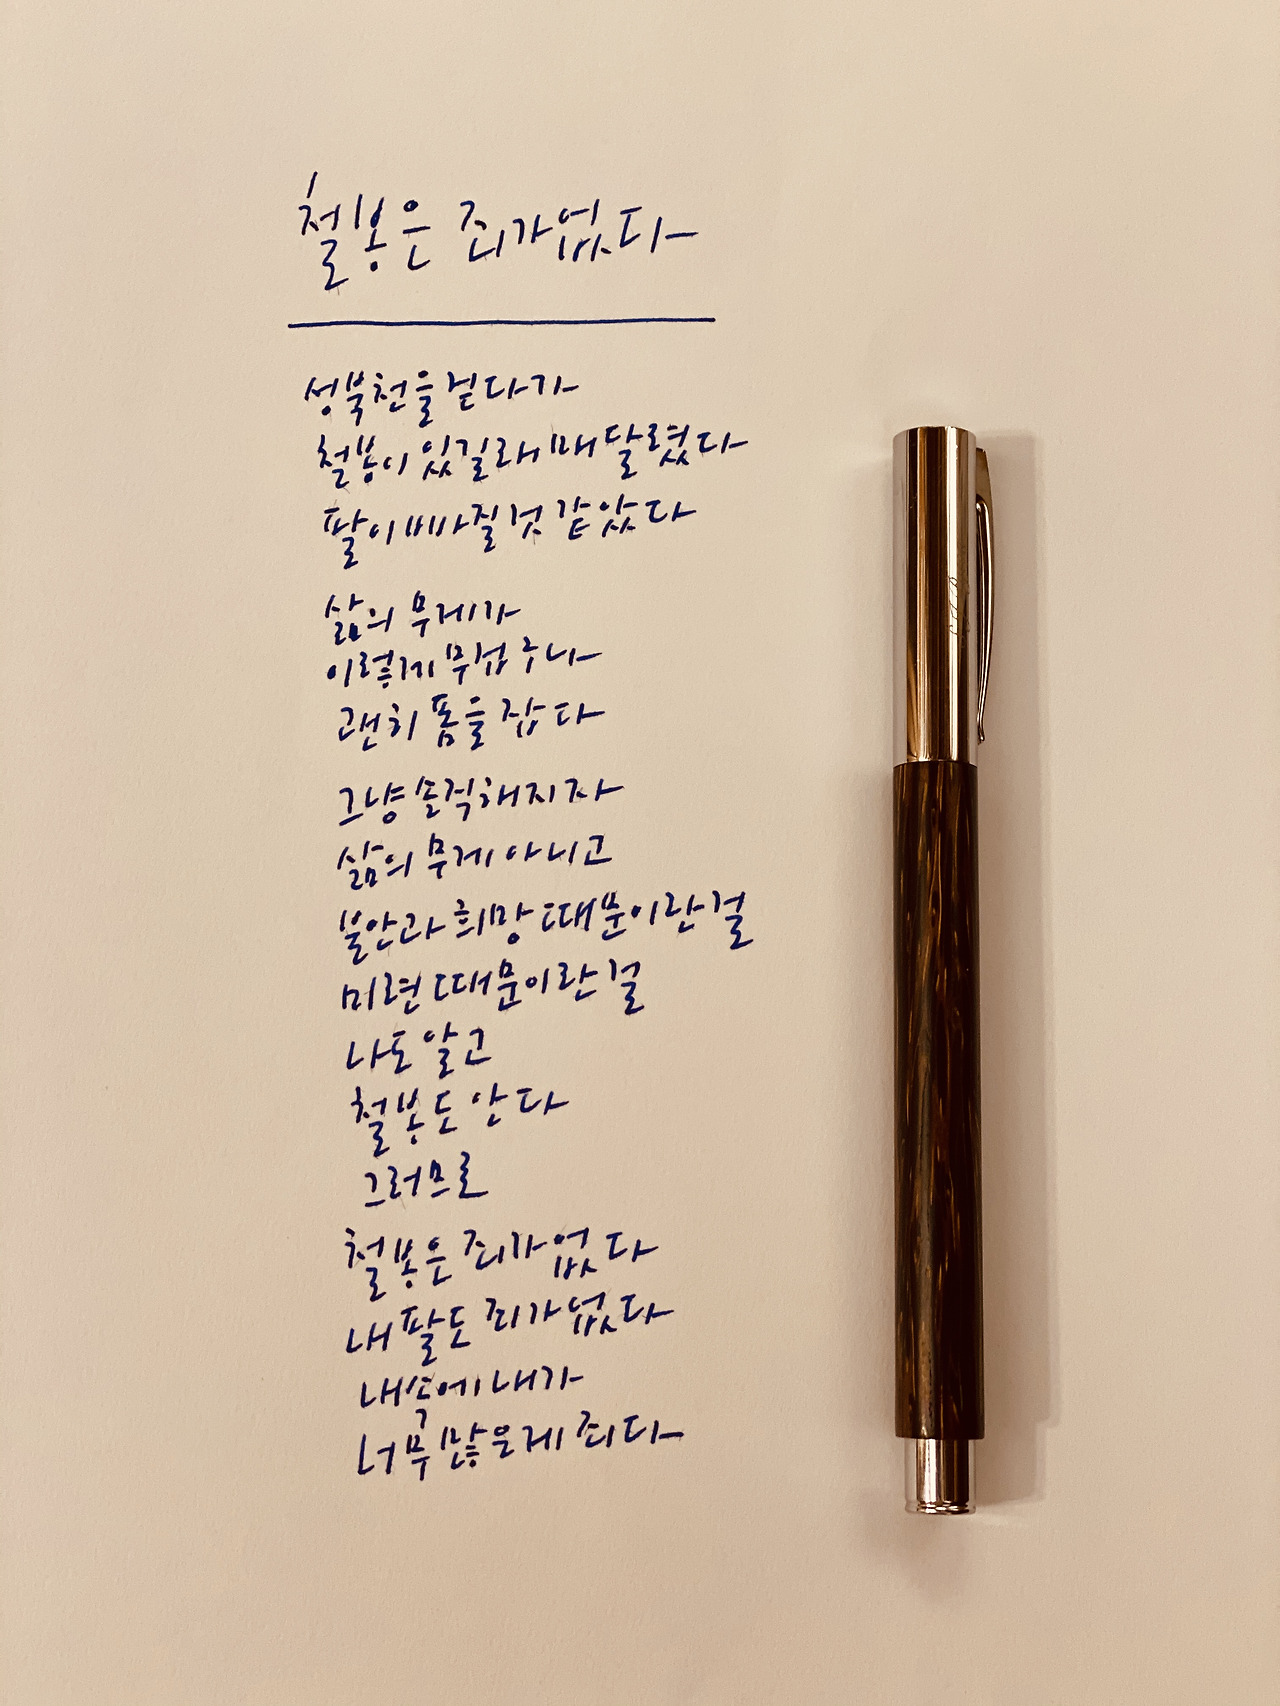 철봉은 죄가 없다
성북천을 걷다가
철봉이 있길래 매달렸다
팔이 빠질 것 같았다
삶의 무게가
이렇게 무겁구나
괜히 폼을 잡다
그냥 솔직해지자
삶의 무게 아니고
불안과 희망 때문이란 걸
미련 때문이란 걸
나도 알고
철봉도 안다
그러므로
철봉은 죄가 없다
내 팔도 죄가 없다
내 속에 내가
너무 많은 게 죄다